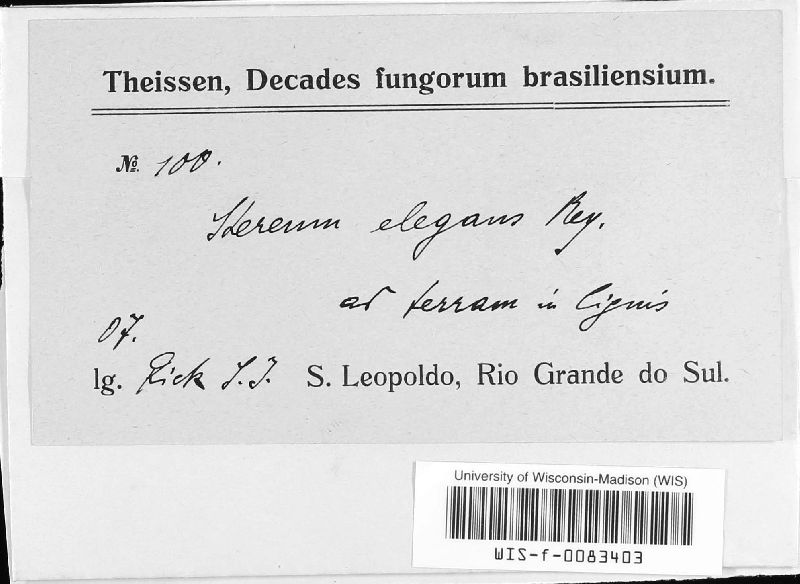 Theissen, Decades fungorum brasiliensium.
№ 100.
Stereum elegans Mey.
ad terram in lignis
07.
lg. Rick S.J. S. Leopoldo, Rio Grande do Sul.
University of Wisconsin-Madison (WIS)
WIS-f-0083403